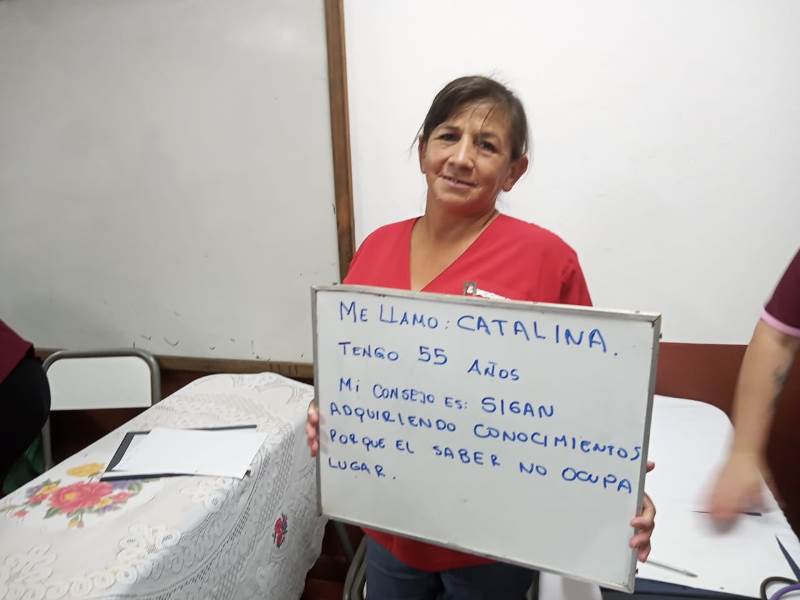 ME LLAMO: CATALINA.
TENGO 55 AÑOS
Mi CONSEJO ES: SIGAN
ADQUIRIENDO CONOCIMIENTOS
PORQUE EL SABER NO OCUPA
LUGAR.